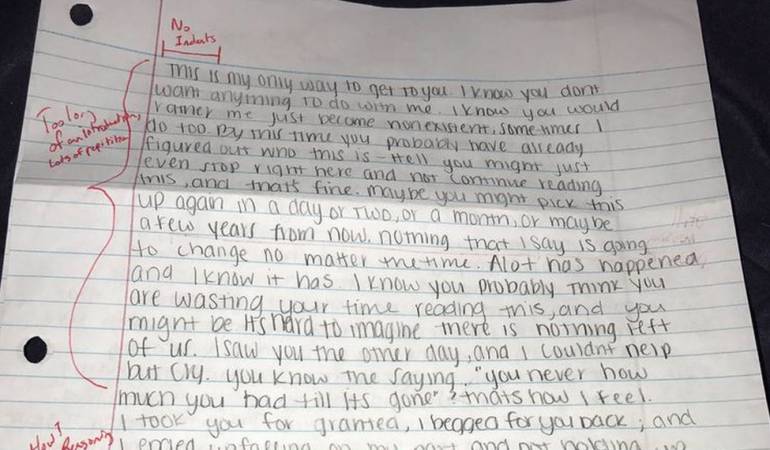 No
Indents
This is my only way to get to you. I know you dont
want anything to do with me. I know you would
rather me just become nonexistent, sometimes I
Too long
of an introduction,
Lots of repitition
do too. By this time you probably have already
figured out who this is - Hell you might just
even stop right here and not continue reading
this, and thats fine. maybe you might pick this
up again in a day or two, or a month, or maybe
a few years from now. nothing that I say is going
to change no matter the time. Alot has happened
and I know it has. I know you probably think you
are wasting your time reading this, and you
might be Its hard to imagine there is nothing left
of us. I saw you the other day, and I couldnt help
but cry. you know the saying, "you never how
much you had till its gone" thats how I feel.
I took you for granted, I begged for you back, and
How?
Reasoning
I ended on my part and not holding up